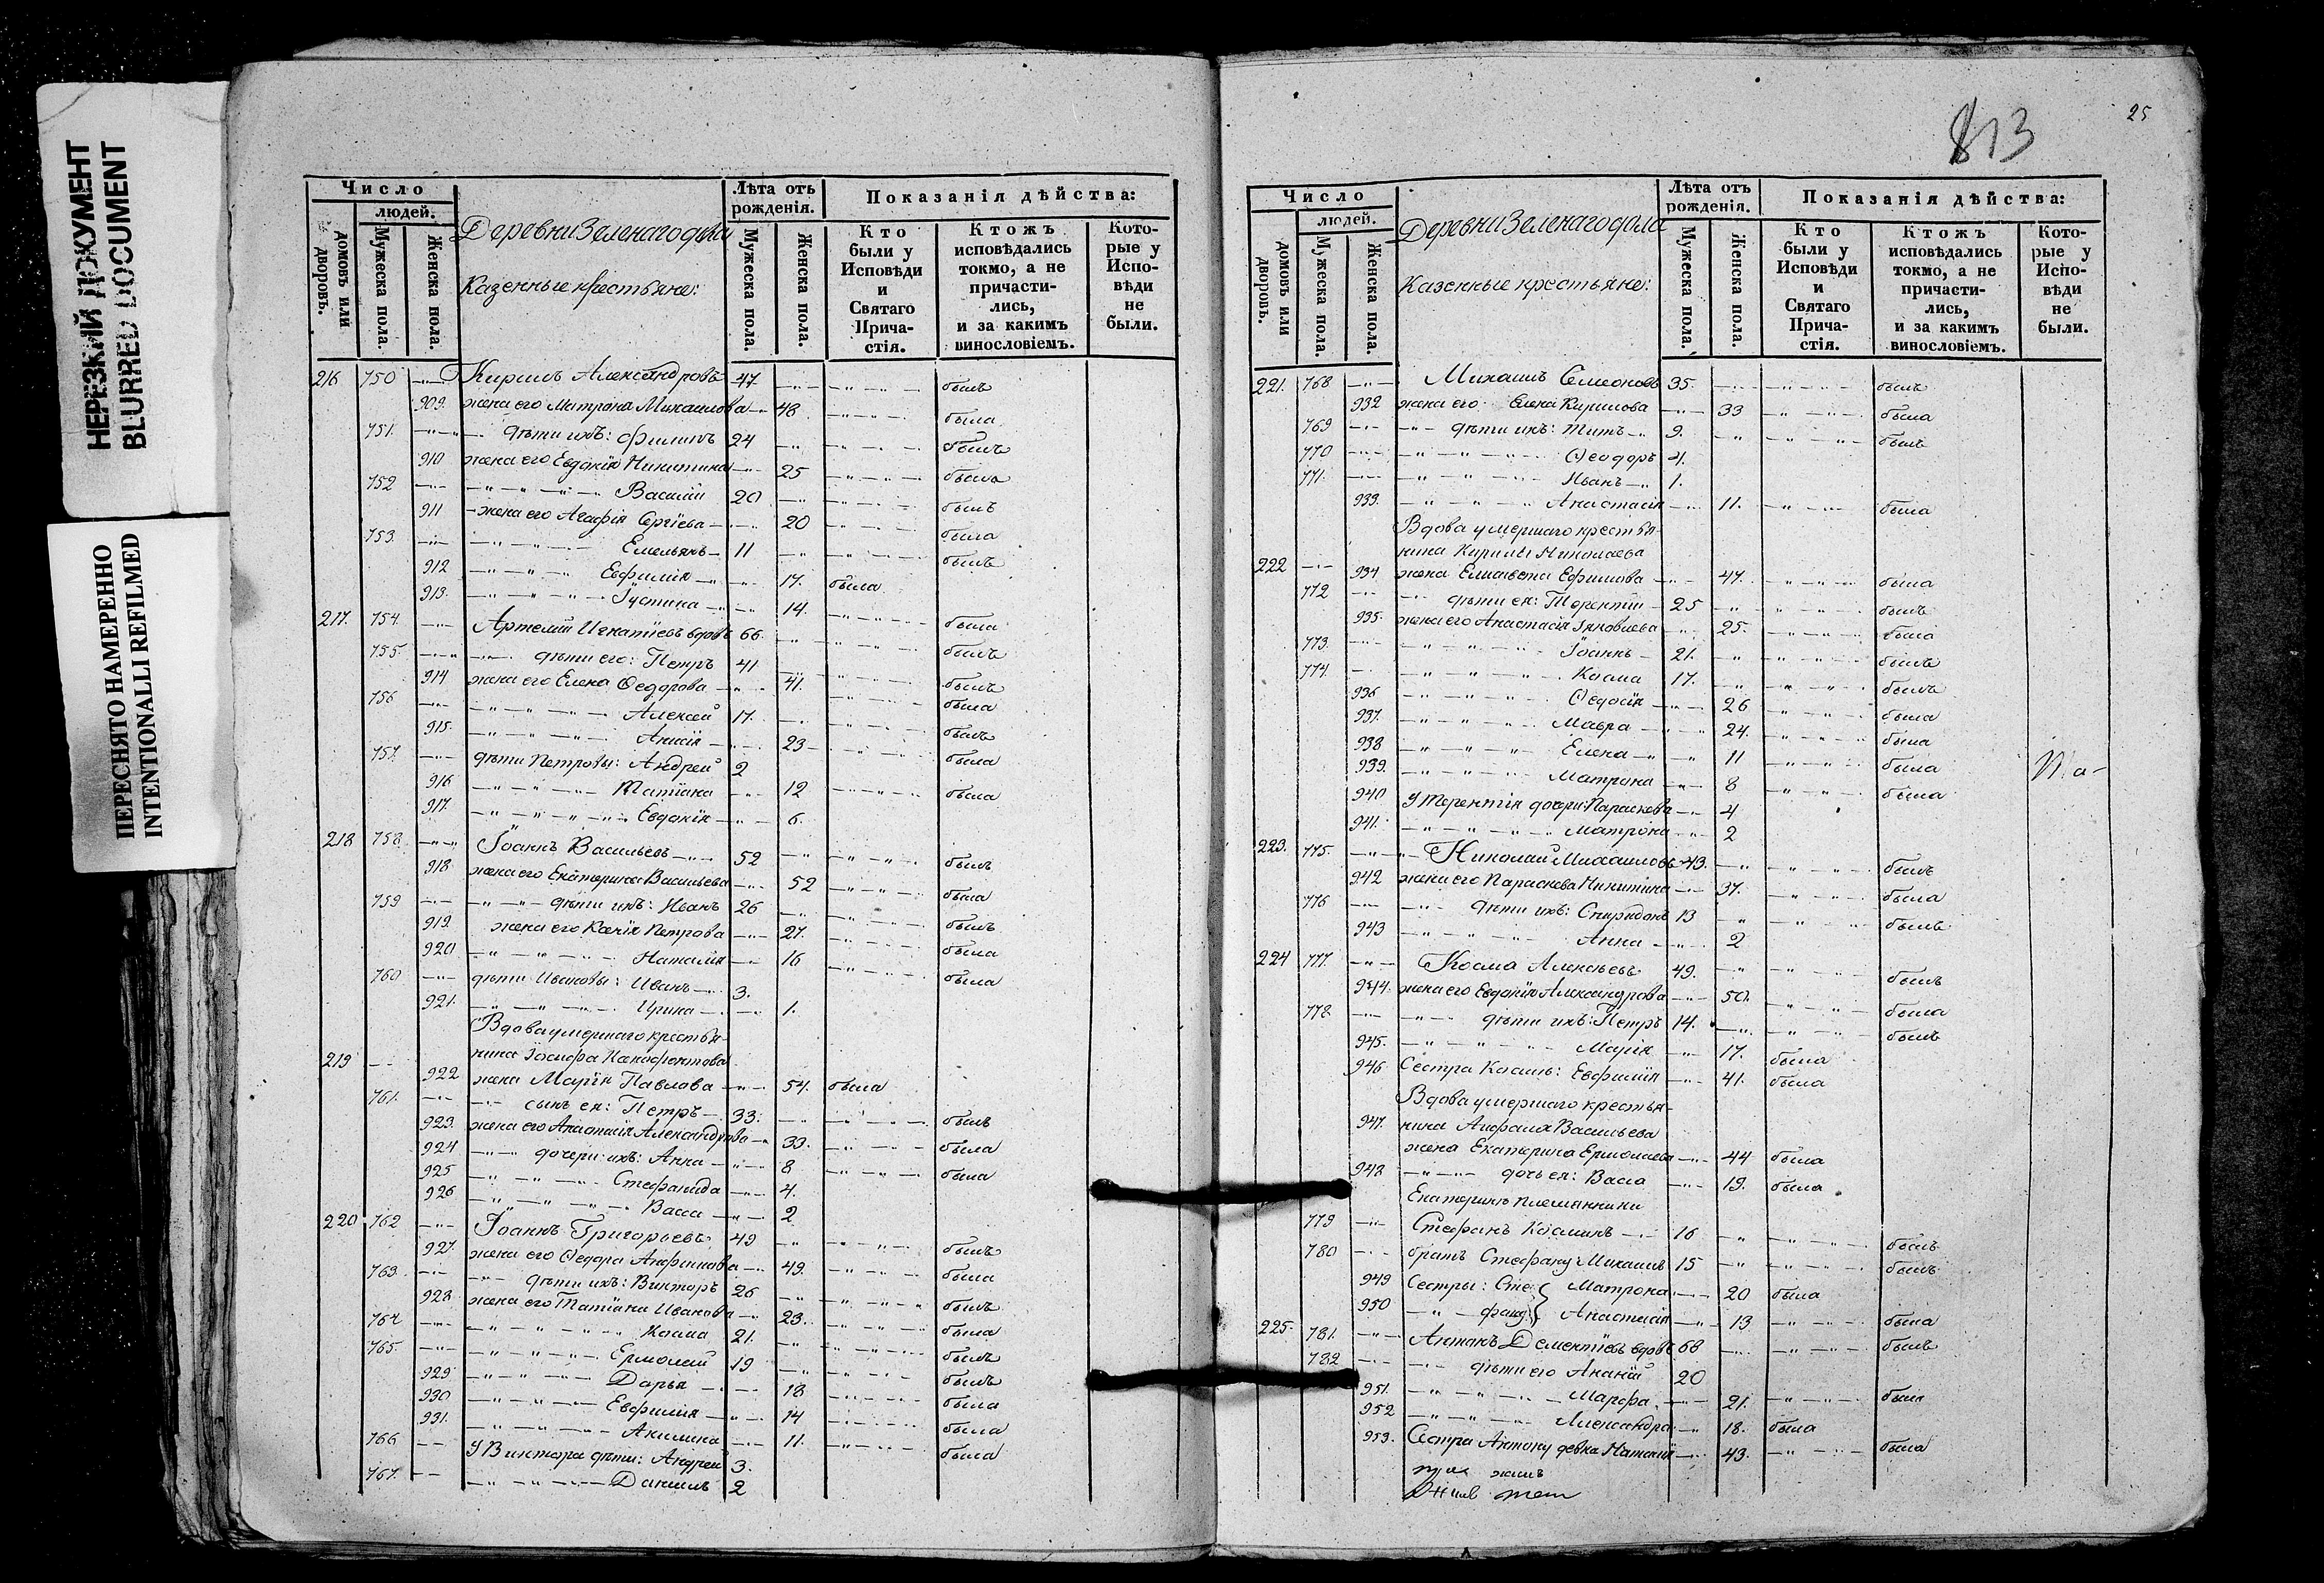 НЕРЕЗКИЙ ДОКУМЕНТ
BLURRED DOCUMENT
ПЕРЕСНЯТО НАМЕРЕННО
INTENTIONALLI REFILMED
Число людей. Лѣта отъ рожденія. Показанія дѣйства:
домовъ или дворовъ. Мужеска пола. Женска пола. Деревни Мужеска пола. Женска пола. Кто были у Исповѣди и Святаго Причастія. Ктожъ исповѣдались токмо, а не причастились, и за какимъ винословіемъ. Которые у Исповѣди не были.
Казенные крестьяне:
216 750 Кирилъ Александровъ 47 былъ
909. жена его Матрона Михаилова 48 была
751. дѣти ихъ: Филипъ 24 былъ
910 жена его Евдокія Никитина 25 была
752 Василій 20 былъ
911 жена его Агафія Сергіева 20 была
753. Емельянъ 11 былъ
912 Евфимія 17. была
913. Іустина 14. была
217. 754 Артемій Игнатіевъ вдовъ 66. былъ
755. дѣти его: Петръ 41 былъ
914 жена его Елена Ѳедорова 41. была
756 Алексей 17. былъ
915. Анисія 23 была
757. дѣти Петровы: Андрей 2
916 Татіана 12 была
917. Евдокія 6.
218 758 Іоаннъ Васильевъ 52 былъ
918 жена его Екатерина Васильева 52 была
759 дѣти ихъ: Иванъ 26 былъ
919. жена его Ксенія Петрова 27. была
920 Наталія 16 была
760 дѣти Ивановы: Иванъ 3.
921. Ирина 1.
Вдова умершаго крестья-
219 нина Іосифа
922 жена Марія Павлова 54. была
761. сынъ ея: Петръ 33. былъ
923. жена его Анастасія Александрова 33. была
924 дочери ихъ: Анна 8 была
925 Стефанида 4.
926 Васса 2
220 762 Іоаннъ Григорьевъ 49 былъ
927. жена его Ѳедора 49. была
763. дѣти ихъ: Викторъ 26 былъ
928. жена его Татіана Иванова 23. была
764 Косма 21. былъ
765. Ермолай 19 былъ
929 Дарья 18 была
930 Евфимія 14 была
931. Акилина 11. была
766 У Виктора дѣти: Андрей 3.
767. Даніилъ 2
813
25
Число людей. Лѣта отъ рожденія. Показанія дѣйства:
домовъ или дворовъ. Мужеска пола. Женска пола. Деревни Зеленагодола Мужеска пола. Женска пола. Кто были у Исповѣди и Святаго Причастія. Ктожъ исповѣдались токмо, а не причастились, и за какимъ винословіемъ. Которые у Исповѣди не были.
Казенные крестьяне:
221. 768 Михаилъ Симеоновъ 35. былъ
932 жена его Елена Кирилова 33 была
769 дѣти ихъ: Титъ 9. былъ
770 Ѳеодоръ 4.
771. Иванъ 1.
933. Анастасія 11. была
Вдова умершаго крестья-
нина Кирилы Николаева
222 934 жена Елисавета Ефимова 47. была
772 дѣти ея: Терентій 25 былъ
935. жена его Анастасія Яковлева 25. была
773. Іоаннъ 21. былъ
774. Косма 17. былъ
936 Ѳедосія 26 была
937. Мавра 24. была
938 Елена 11 была
939. Матрона 8 была
940 У Терентія дочери: Параскева 4
941. Матрона 2
223. 775. Николай Михаиловъ 43. былъ
942 жена его Параскева Никитина 37. была
776 дѣти ихъ: Спиридонъ 13 былъ
943 Анна 2
224 777. Косма Алексѣевъ 49. былъ
944. жена его Евдокія Александрова 50. была
778 дѣти ихъ: Петръ 14. былъ
945. Марія 17. была
946 Сестра Космы: Евфимія 41. была
Вдова умершаго крестья-
947. нина Васильева
жена Екатерина Ермолаева 44 была
948 дочь ея: Васса 19. была
Екатерины племянники
779 Стефанъ Косминъ 16 былъ
780 братъ Стефану Михаилъ 15 былъ
949 Сестры: Сте- Матрона 20 была
950 фану: Анастасія 13 была
225. 781. Антонъ Дементіевъ вдовъ 68 былъ
782 дѣти его Ананій 20
951. Марфа 21. была
952 Александра 18. была
953. Сестра Антону девка Наталія 43. была